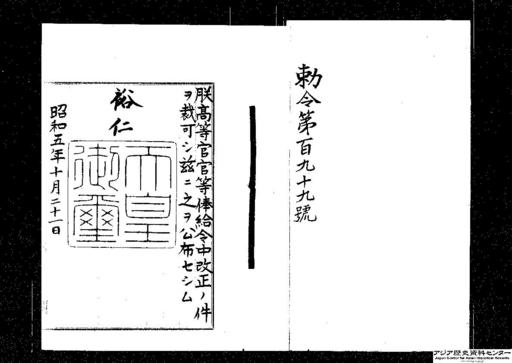 勅令第百九十九號
朕高等官官等俸給令中改正ノ件
ヲ裁可シ茲ニ之ヲ公布セシム
裕仁
天皇
御璽
昭和五年十月二十一日
アジア歴史資料センター
Japan Center for Asian Historical Records